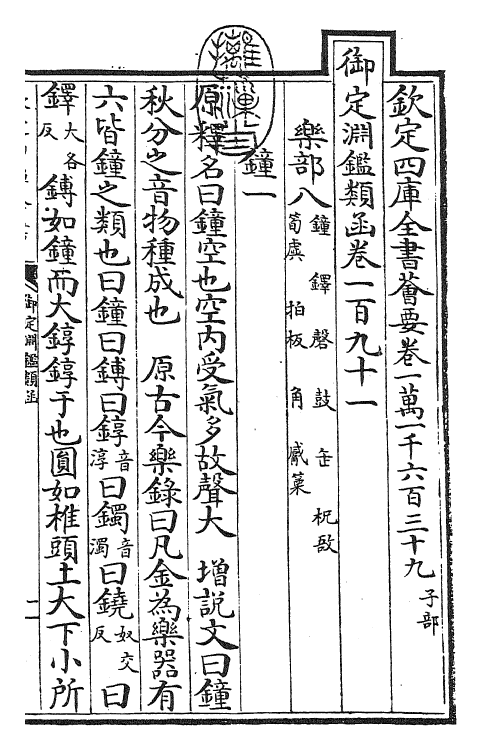 欽定四庫全書薈要卷一萬一千六百三十九 子部
御定淵鑑類函卷一百九十一
樂部八 鐘 鐸 磬 鼓 缶 柷敔
筍虡 拍板 角 觱篥
鐘一
原釋名曰鐘空也空内受氣多故聲大 增説文曰鐘
秋分之音物種成也 原古今樂錄曰凡金為樂器有
六皆鐘之類也曰鐘曰鎛曰錞音淳曰鐲音濁曰鐃奴交反曰
鐸大各反鎛如鐘而大錞錞于也圓如椎頭土大下小所
御定淵鑑類函